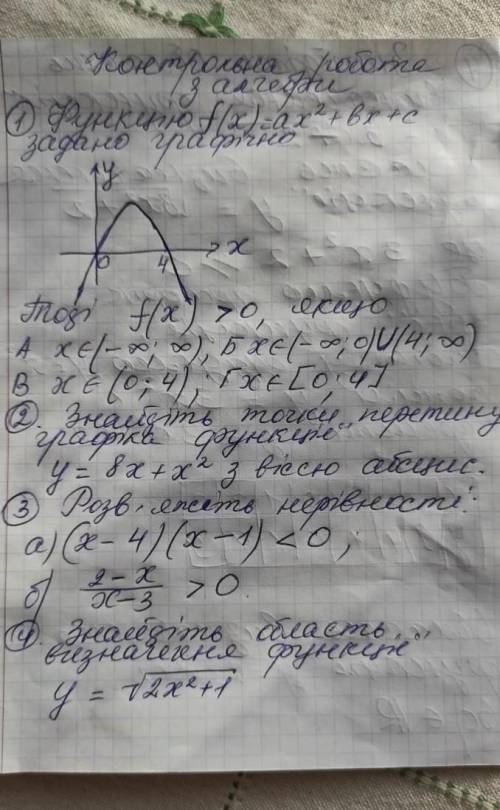 Контрольна робота
з алгебри
1 Функцію f(x)=ax²+bx+c
задано графічно
y
0 4 x
Тоді f(x) >0, якщо
А x∈(-∞; ∞); Б x∈(-∞;0)U(4;∞)
В x∈(0;4); Г x∈[0;4]
2. Знайдіть точки перетину
графіка функції
y = 8x+x² з віссю абсцис.
3 Розв'яжіть нерівності:
а) (x-4)(x-1)<0;
б) (2-x)/(x-3) >0.
4. Знайдіть область
визначення функції
y = √(2x²+1)